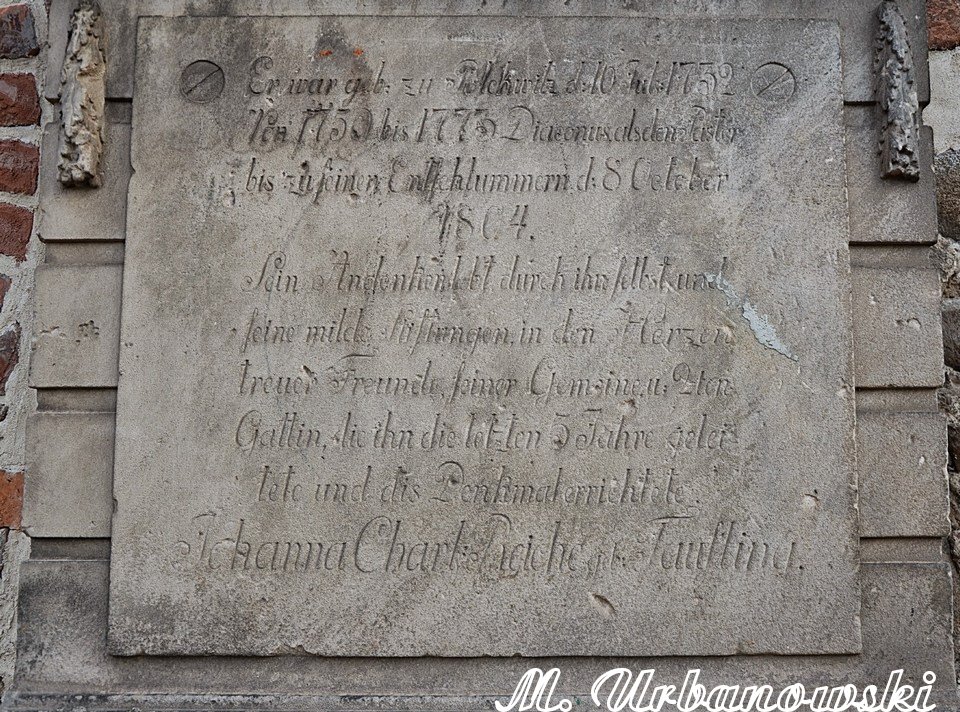 Er war geb: zu Polckwitz d: 10 Jul: 1732
Von 1759 bis 1773 Diaconus, alsden Pastor
bis zu seinen Entschlummern d: 8 October
1804.
Sein Andenken lebt durch ihn selbst und
seine milde Stiftungen, in den Herzen
treuer Freunde, seiner Gemeine u: 2ten
Gattin, die ihn die letzten 5 Jahre gelei
tete und dis Denkmal errichtete.
Johanna Charl: geb:
M. Urbanowski